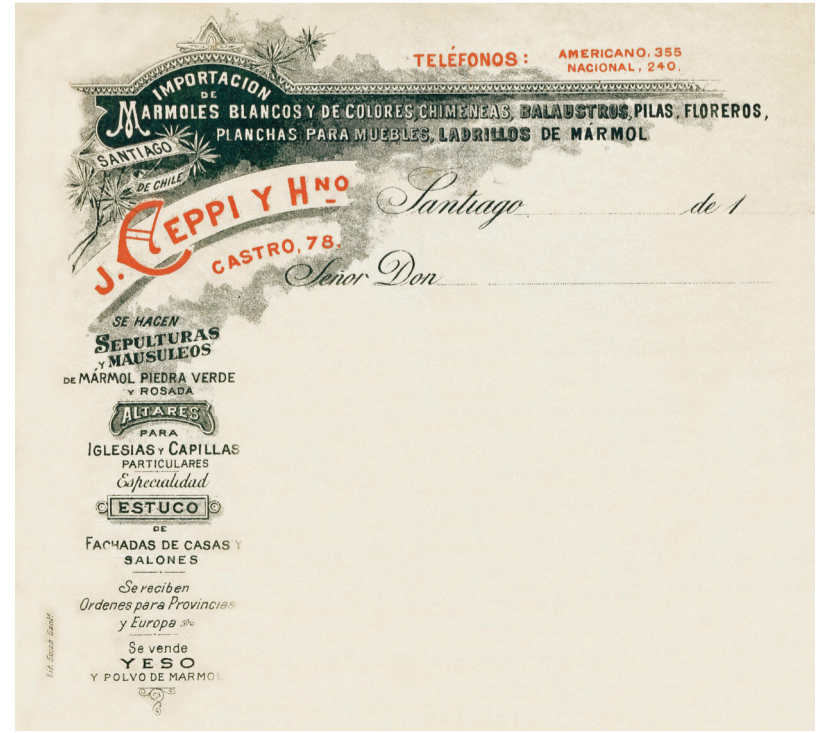 TELÉFONOS: AMERICANO, 355
NACIONAL, 240.
IMPORTACION
DE
MARMOLES BLANCOS Y DE COLORES CHIMENEAS, BALAUSTROS, PILAS, FLOREROS,
PLANCHAS PARA MUEBLES, LADRILLOS DE MÁRMOL
SANTIAGO
DE CHILE
J. CEPPI Y HNO
CASTRO, 78.
Santiago de 1
Señor Don
SE HACEN
SEPULTURAS
Y MAUSULEOS
DE MÁRMOL PIEDRA VERDE
Y ROSADA
ALTARES
PARA
IGLESIAS Y CAPILLAS
PARTICULARES
Especialidad
ESTUCO
DE
FACHADAS DE CASAS Y
SALONES
Se reciben
Ordenes para Provincias
y Europa
Se vende
YESO
Y POLVO DE MARMOL